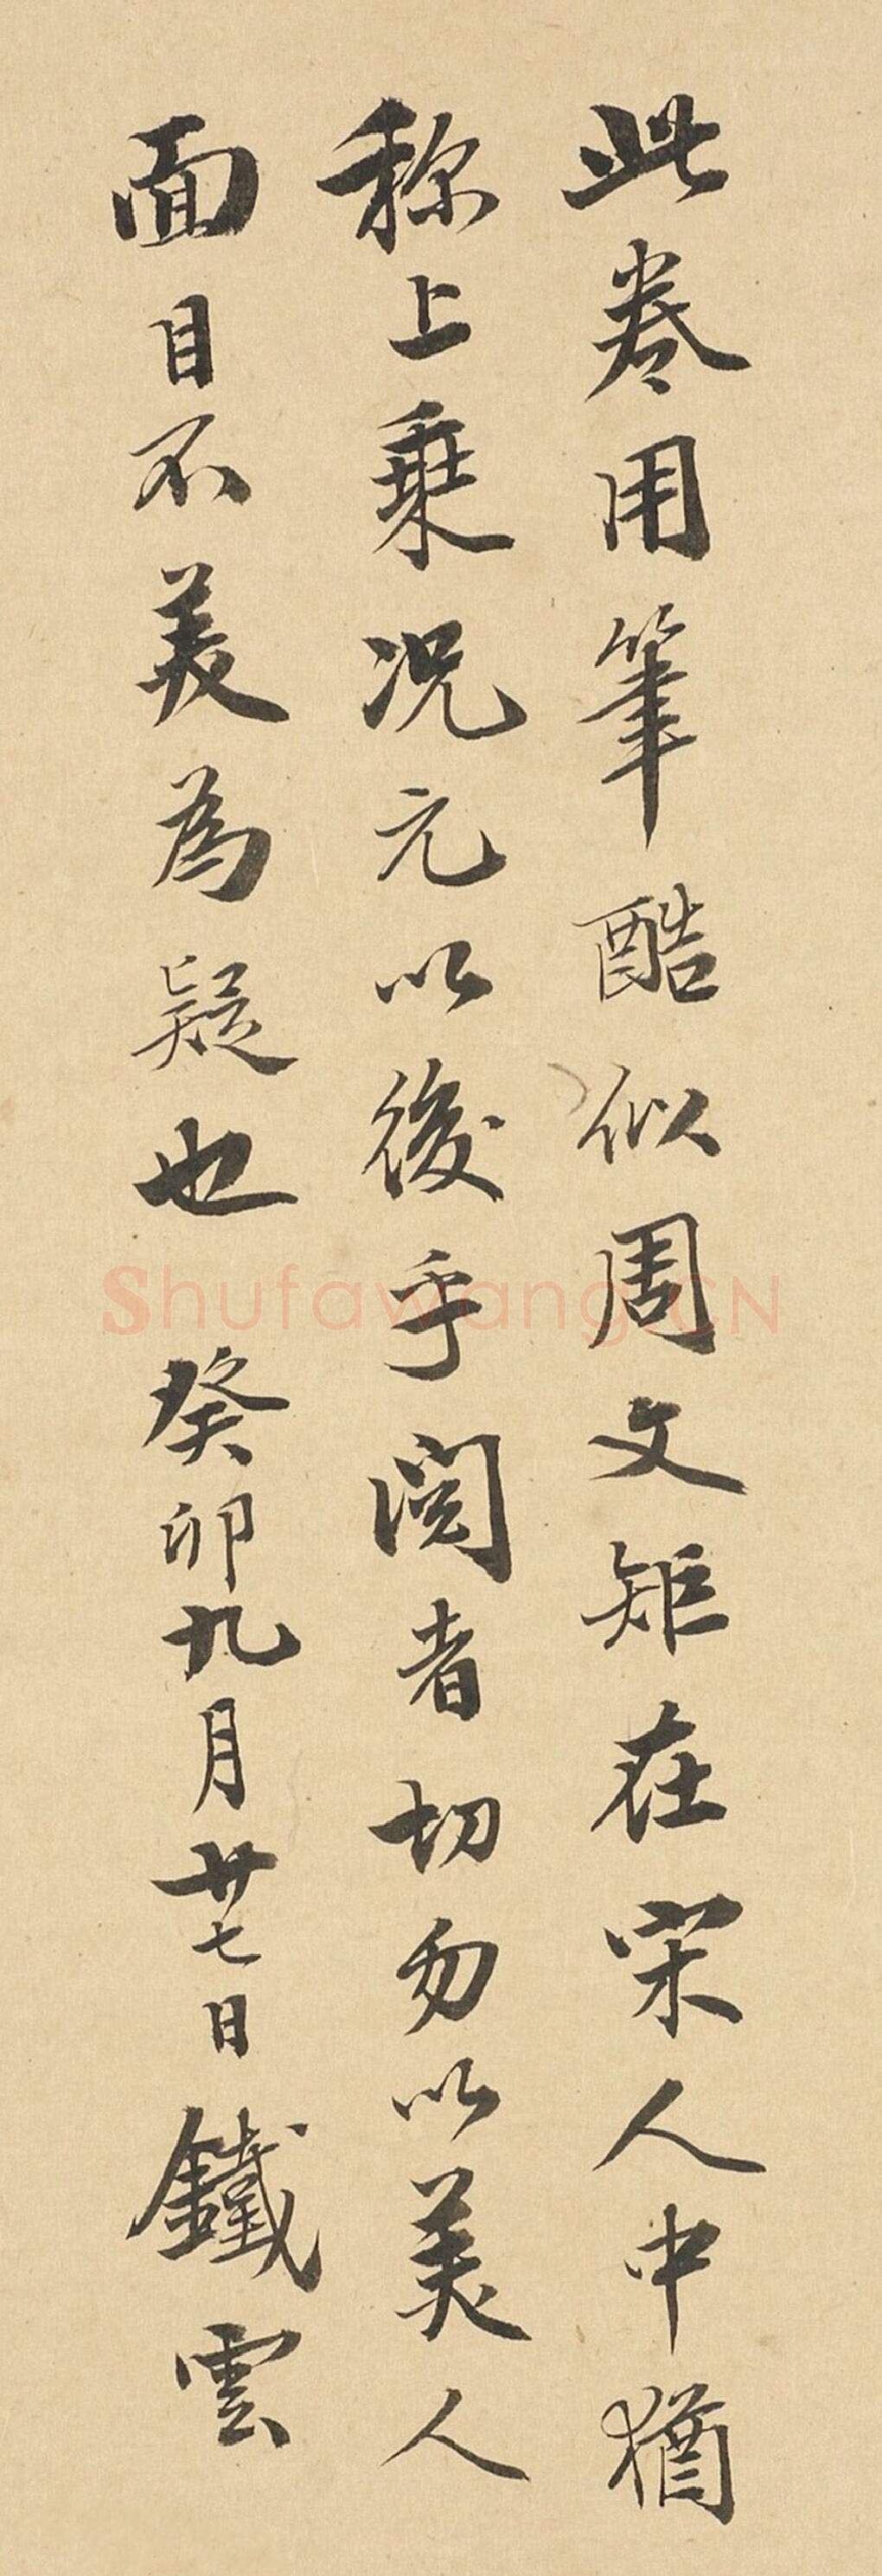 此卷用筆酷似周文矩在宋人中猶
称上乗况元以後乎閲者切勿以美人
面目不美為疑也 癸卯九月廿七日 鐵雲
Shufawang.CN